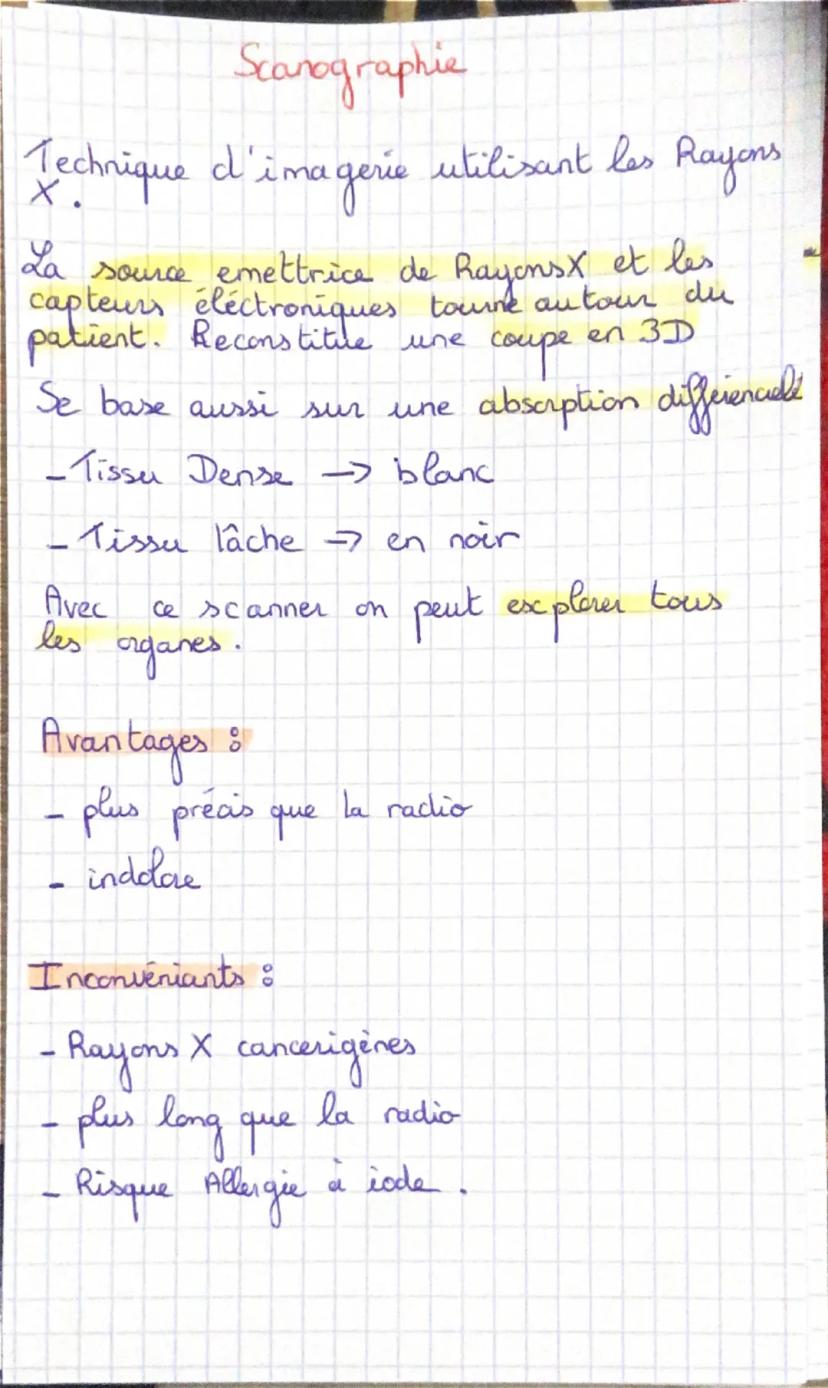 Scanographie
Technique d'imagerie utilisant les Rayons
X.
La source emettrice de Rayons X et les
capteurs éléctroniques tourne autour du
patient. Reconstitue une coupe en 3D
Se base aussi sur une absorption différencielle
- Tissu Dense → blanc
- Tissu lâche → en noir
Avec ce scanner on peut explorer tous
les organes.
Avantages :
- plus précis que la radio
- indolore
Inconvéniants :
- Rayons X cancerigènes
- plus long que la radio
- Risque Allergie à iode.